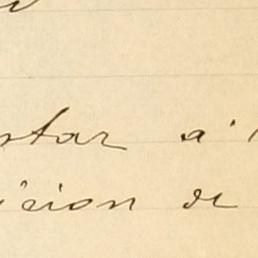 star á
ición de